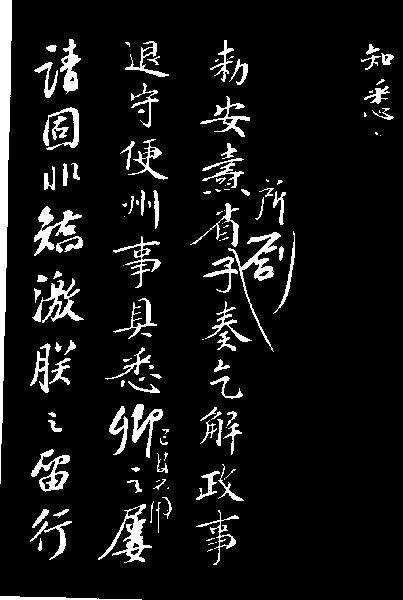 知悉
勅安燾省所劄子奏乞解政事
退守便州事具悉卿之屡
請固非矯激朕之留行